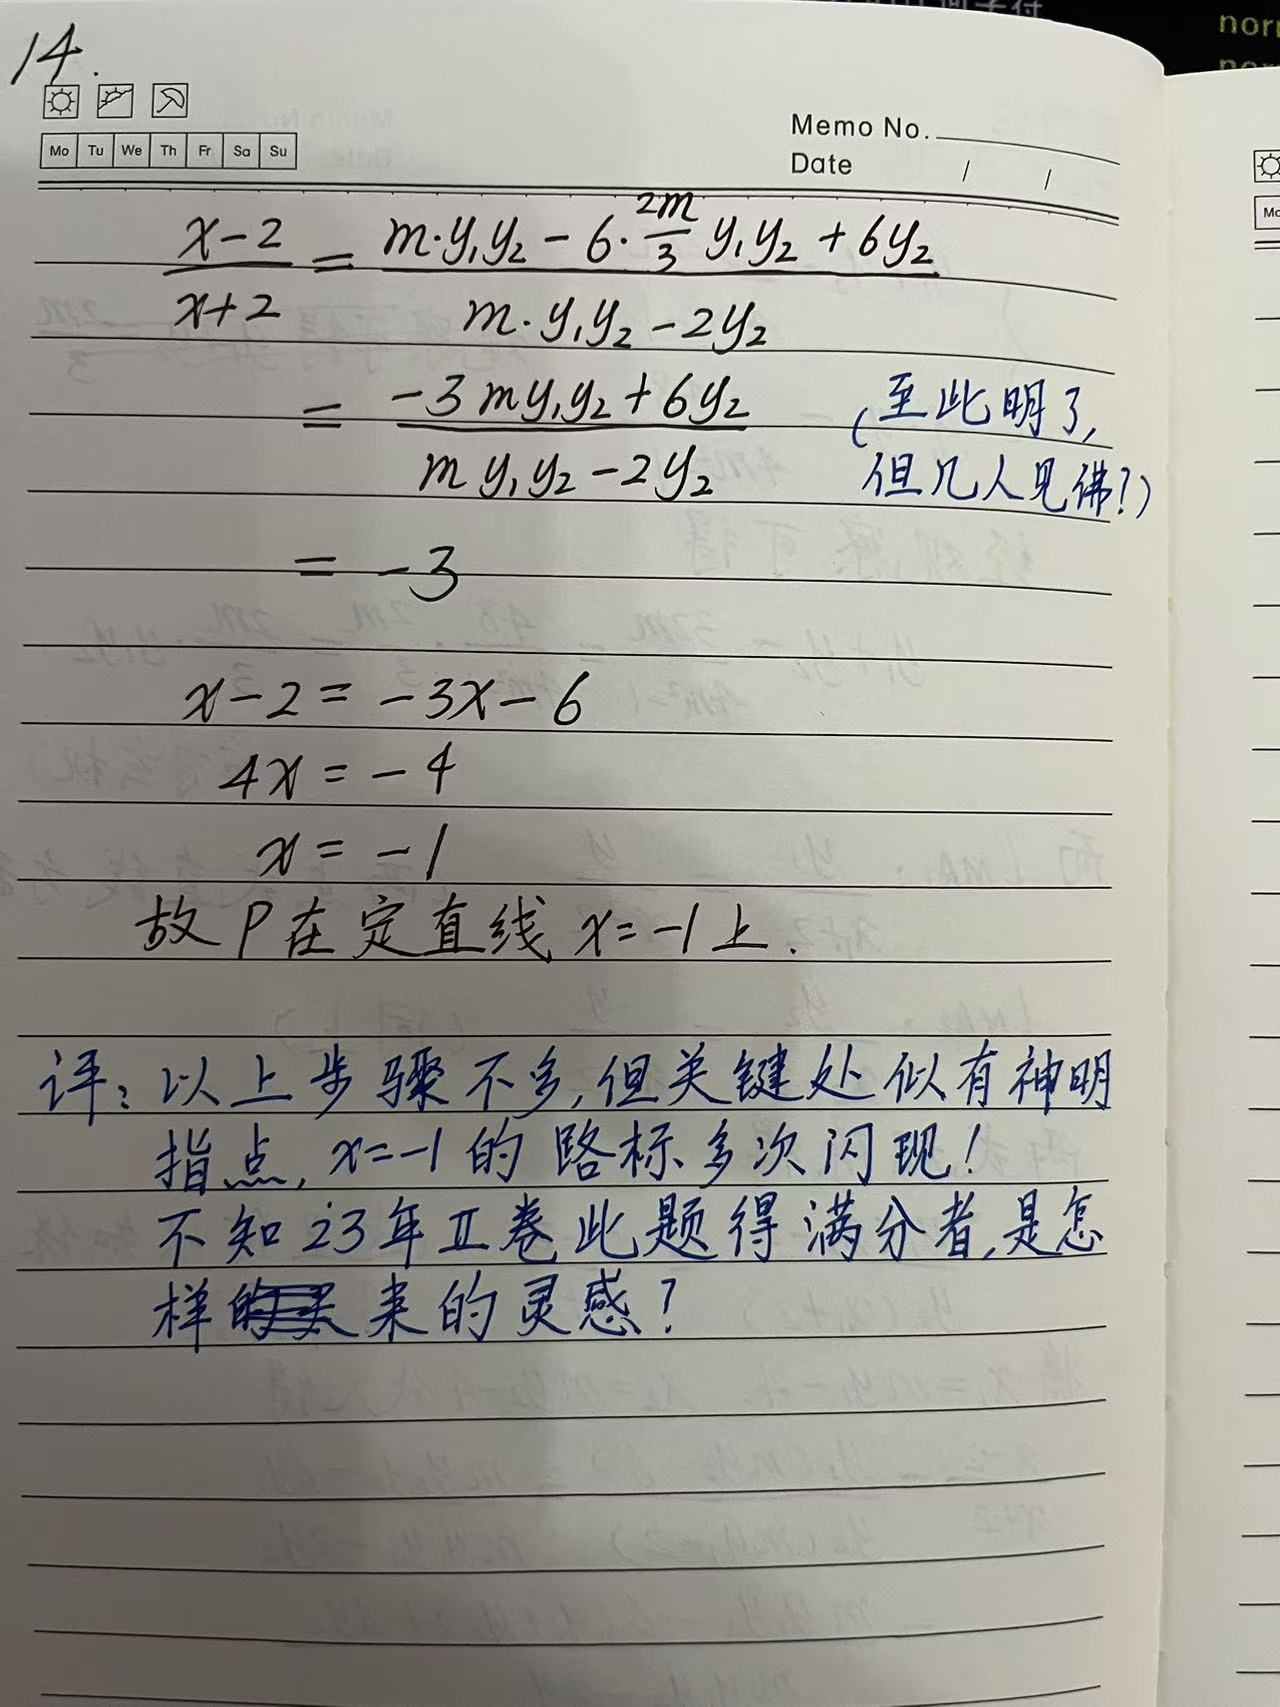 14.
Mo Tu We Th Fr Sa Su
Memo No.
Date / /
x-2 / x+2 = m·y₁y₂ - 6·2m/3 y₁y₂ + 6y₂ / m·y₁y₂ - 2y₂
= -3my₁y₂ + 6y₂ / my₁y₂ - 2y₂
(至此明了,
但几人见佛?)
= -3
x-2 = -3x-6
4x = -4
x = -1
故P在定直线 x=-1上.
评: 以上步骤不多,但关键处似有神明
指点, x=-1的路标多次闪现!
不知23年II卷此题得满分者,是怎
样来的灵感?